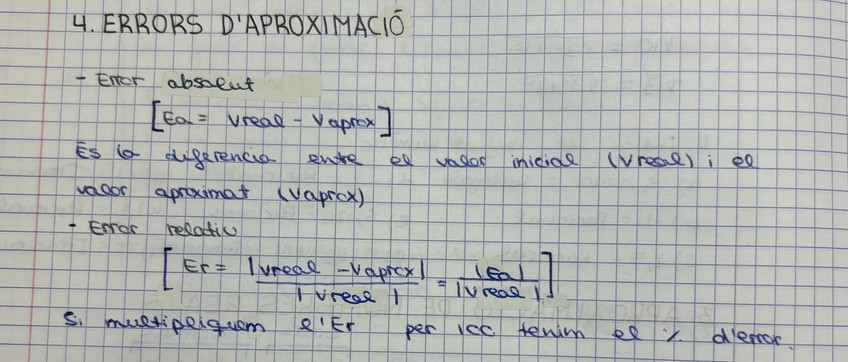 4. ERRORS D'APROXIMACIÓ
- Error absolut
[Ea = Vreal - Vaprox]
És la diferencia entre el valor inicial (Vreal) i el
valor aproximat (Vaprox)
- Error relatiu
[Er = |Vreal - Vaprox| / |Vreal| = |Ea| / |Vreal|]
Si multipliquem l'Er per 100 tenim el % d'error.